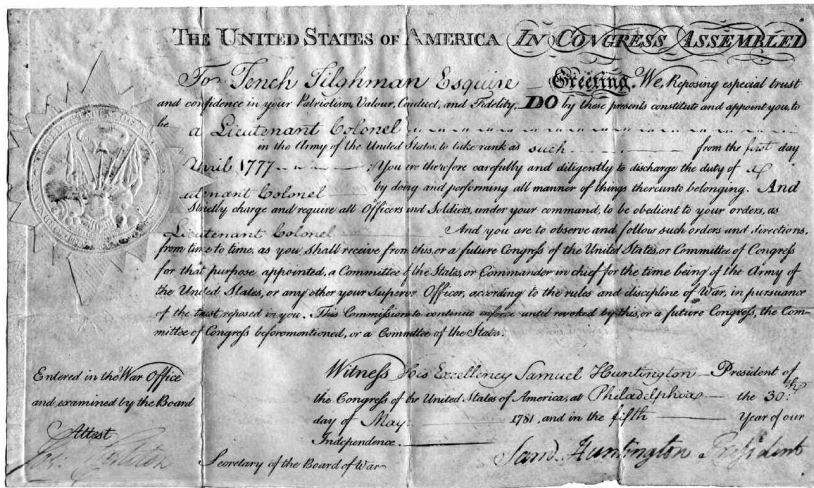 THE UNITED STATES OF AMERICA IN CONGRESS ASSEMBLED
To Tench Tilghman Esquire Greeting. We, Reposing especial trust
and confidence in your Patriotism, Valour, Conduct, and Fidelity, DO by these presents constitute and appoint you, to
be a Lieutenant Colonel
in the Army of the United States, to take rank as such from the first day
April 1777 You are therefore carefully and diligently to discharge the duty of a
utenant Colonel by doing and performing all manner of things thereunto belonging. And
Strictly charge and require all Officers and Soldiers, under your command, to be obedient to your orders, as
Lieutenant Colonel And you are to observe and follow such orders and directions,
from time to time, as you Shall receive from this, or a future Congress of the United States, or Committee of Congress
for that purpose appointed, a Committee of the States, or Commander in chief for the time being of the Army of
the United States, or any other your Superior Officer, according to the rules and discipline of War, in pursuance
of the trust reposed in you. This Commission to continue inforce until revoked by this, or a future Congress, the Com-
mittee of Congress beforementioned, or a Committee of the States.
Entered in the War Office
and examined by the Board
Attest
Secretary of the Board of War
Witness His Excellency Samuel Huntington President of
the Congress of the United States of America, at Philadelphia the 30th
day of May 1781, and in the fifth Year of our
Independence.
Sam. Huntington President